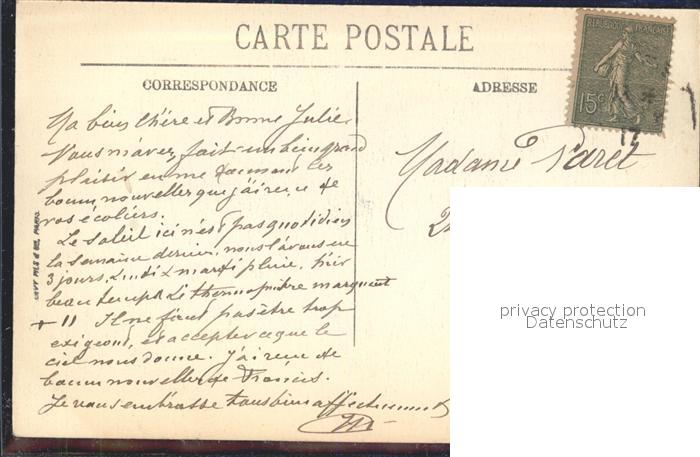 CARTE POSTALE
REPUBLIQUE FRANÇAISE
15c
CORRESPONDANCE
ADRESSE
Ma bien Chère et Bonne Julie
Vous m'avez fait un bien grand
plaisir en me donnant les
bonnes nouvelles que j'ai reçu de
vos écoliers.
Le soleil ici n'est pas quotidien
la semaine dernière nous l'avons eu
3 jours, Lundi & mardi pluie, hier
beau temps Le thermomètre marquent
+ 11 Il ne faut pas être trop
exigeant, et accepter ce que le
ciel nous donne. J'ai reçu de
bonnes nouvelles de Francis.
Je vous embrasse tous bien affectueusement
Madame Paret
LEVY FILS & CIE, PARIS
privacy protection
Datenschutz